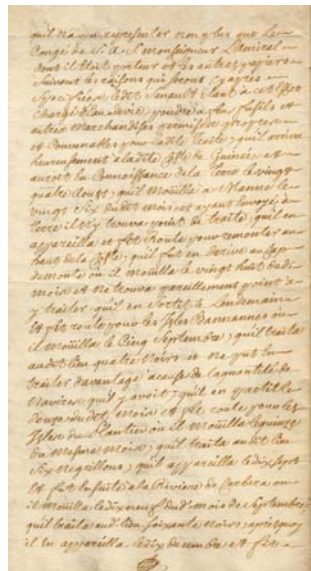 qu'il n'a pu representer non plus que Le
Congé de S. A. S. monseigneur L'amiral
dont il étoit porteur et les autres papiers
suivant les raisons qui seront cy après
ledit Senault étant à cet Effet
chargé d'eau de vie, poudre a feu, fusils et
autres Marchandises permises, propres
et Convenables pour ladite traite, qu'il arriva
heureusement a ladite Côste de Guinée, et
auroit Eu Connoissance de la Terre le vingt
quatre d'oust, qu'il moüilla a le
vingt Six dudit mois, et ayant Envoyé a
Terre il n'y trouva point de traite, qu'il en
appareilla et fit Route pour remonter au
haut de la Coste, qu'il fut en derive au Cap
de monte où il moüilla le vingt huit dudit
mois et ne trouva pareillement point a
y traiter, qu'il en Sortit le Lendemain
Et fit route pour les Isles Bannannes où
il moüilla le Cinq Septembre, qu'il traita
audit lieu quatre Noirs et ne put en
traiter davantage a cause de la quantité de
Navires qu'il y avoit, qu'il en partit le
douze dudit mois et fit route pour les
Isles de où il moüilla le quinze
du mesme mois, qu'il traita audit lieu
Six Negrillons, qu'il appareilla le dix Sept
Et fut Ensuite a la Riviere de où
il moüilla le dix neuf dud. mois de Septembre,
qu'il traita aud. lieu soixante noirs, après quoy
il en appareilla le dix decembre et fit